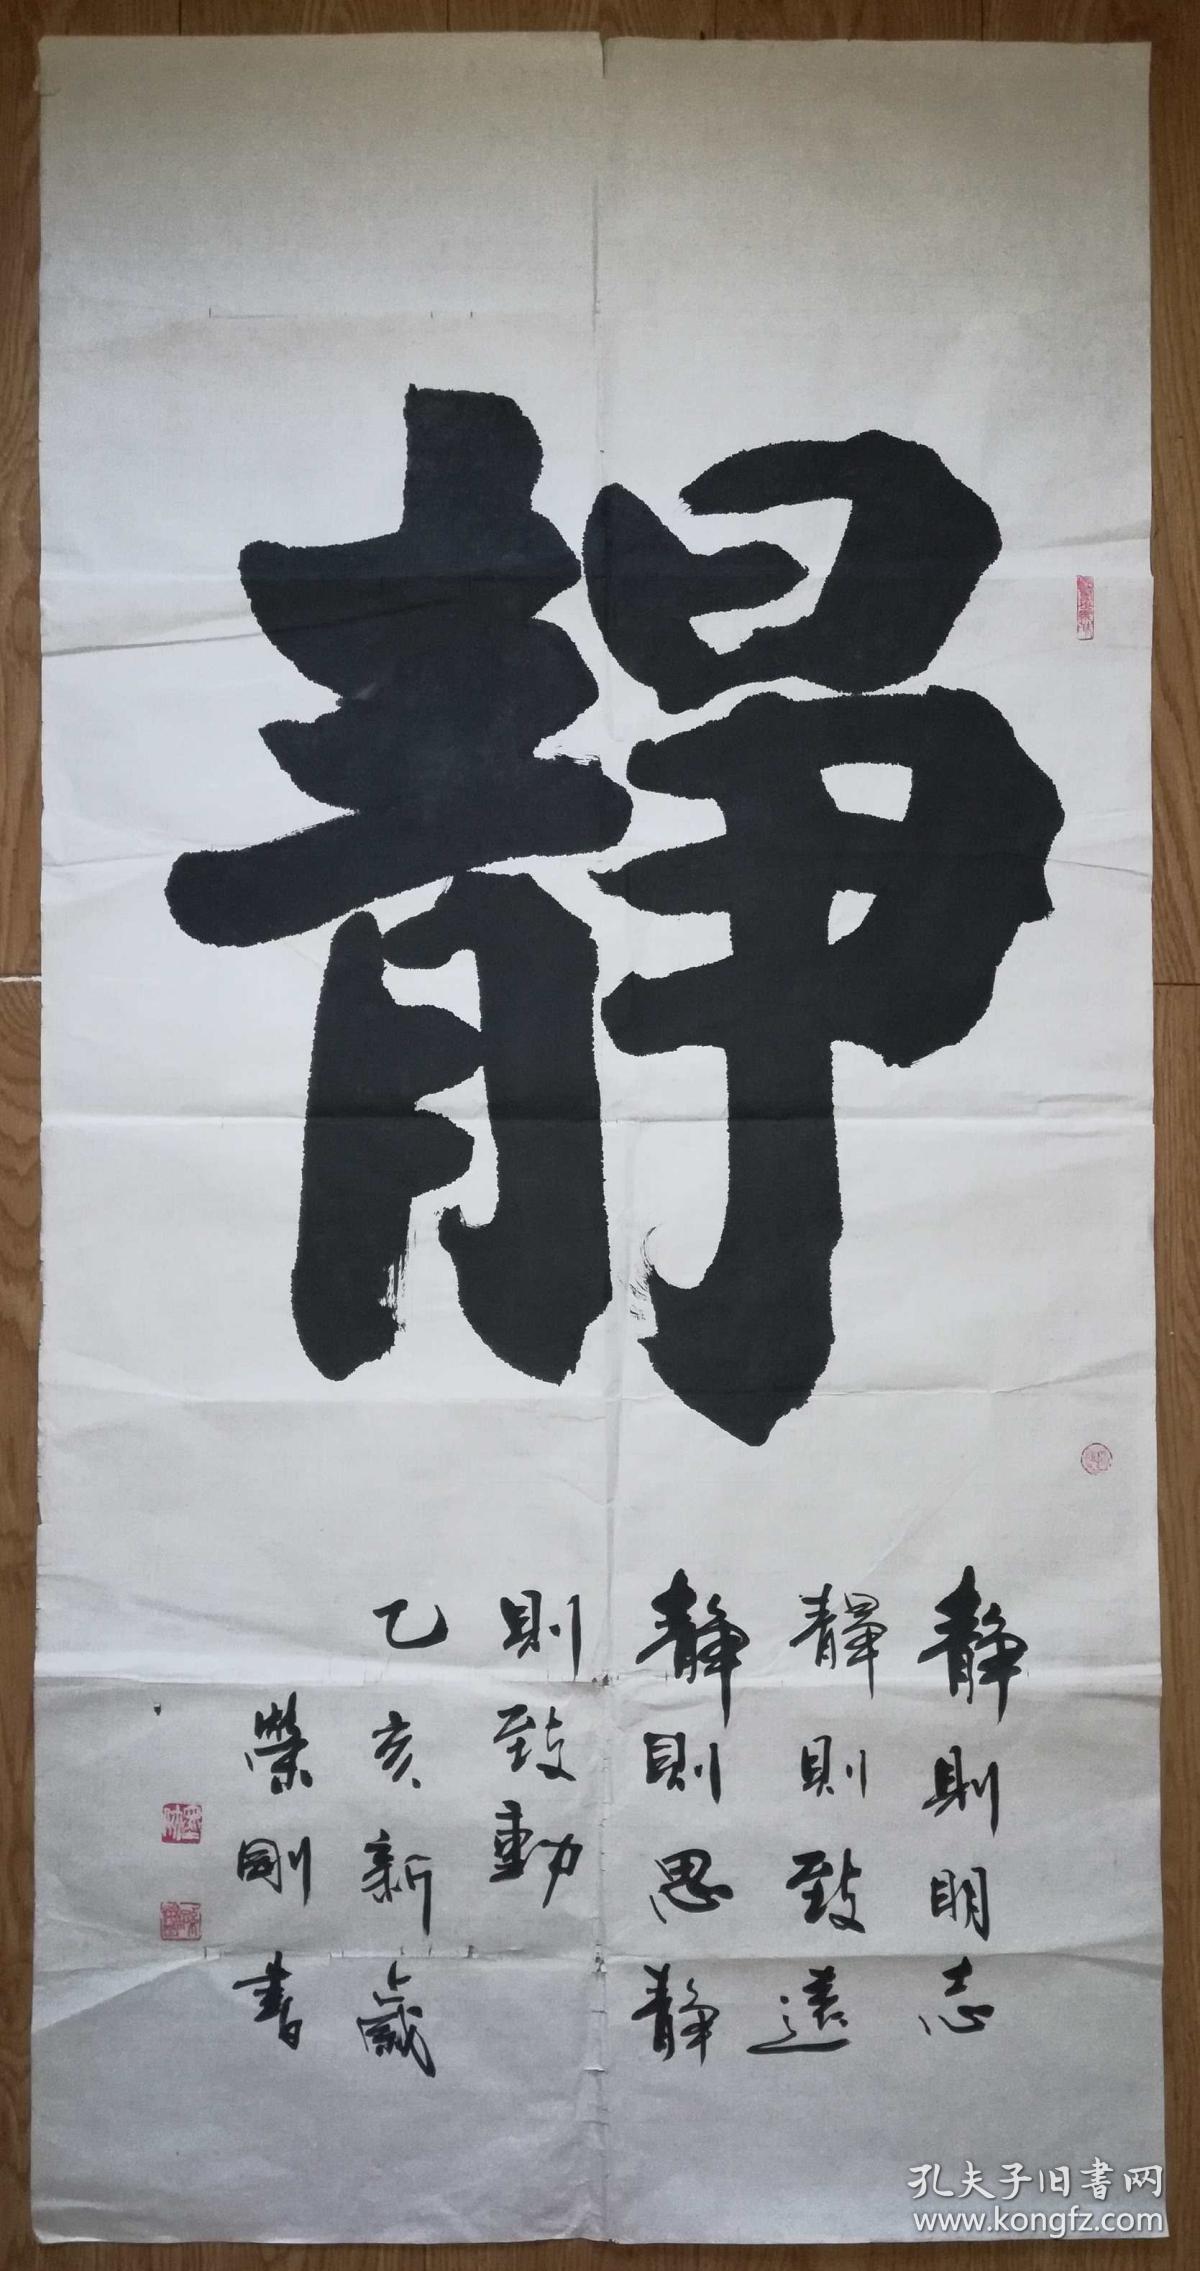 靜
靜則明志
靜則致遠
靜則思靜
則致動
乙亥新歲
榮剛書
孔夫子旧書网
www.kongfz.com